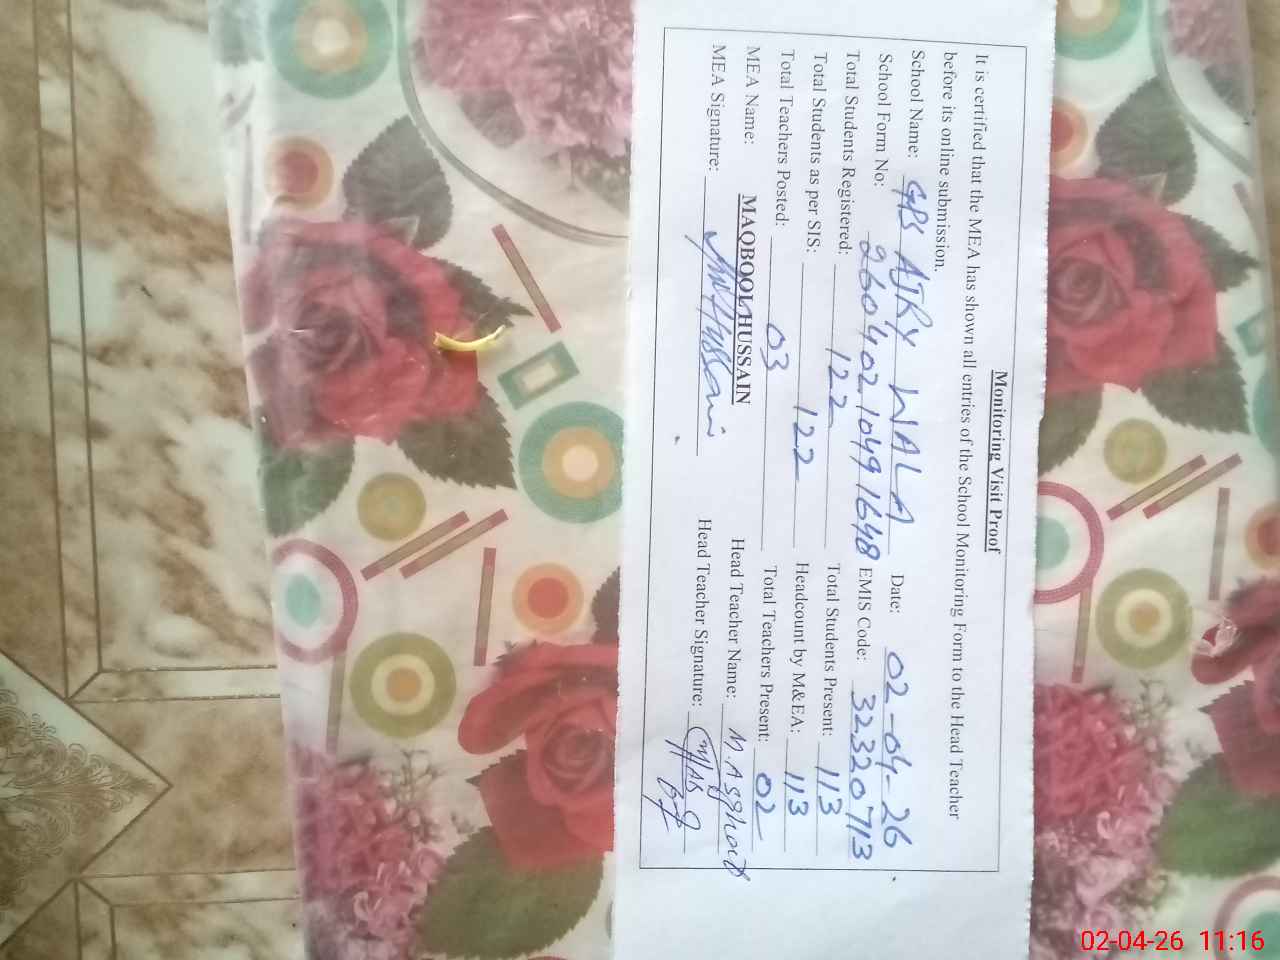 Monitoring Visit Proof
It is certified that the MEA has shown all entries of the School Monitoring Form to the Head Teacher
before its online submission.
School Name: GPS AJRY WALA Date: 02-04-26
School Form No: 260402104991648 EMIS Code: 32320713
Total Students Registered: 122 Total Students Present: 113
Total Students as per SIS: 122 Headcount by M&EA: 113
Total Teachers Posted: 03 Total Teachers Present: 02
MEA Name: MAQBOOL HUSSAIN Head Teacher Name: M. Asghar
MEA Signature: Hussain Head Teacher Signature:
02-04-26 11:16